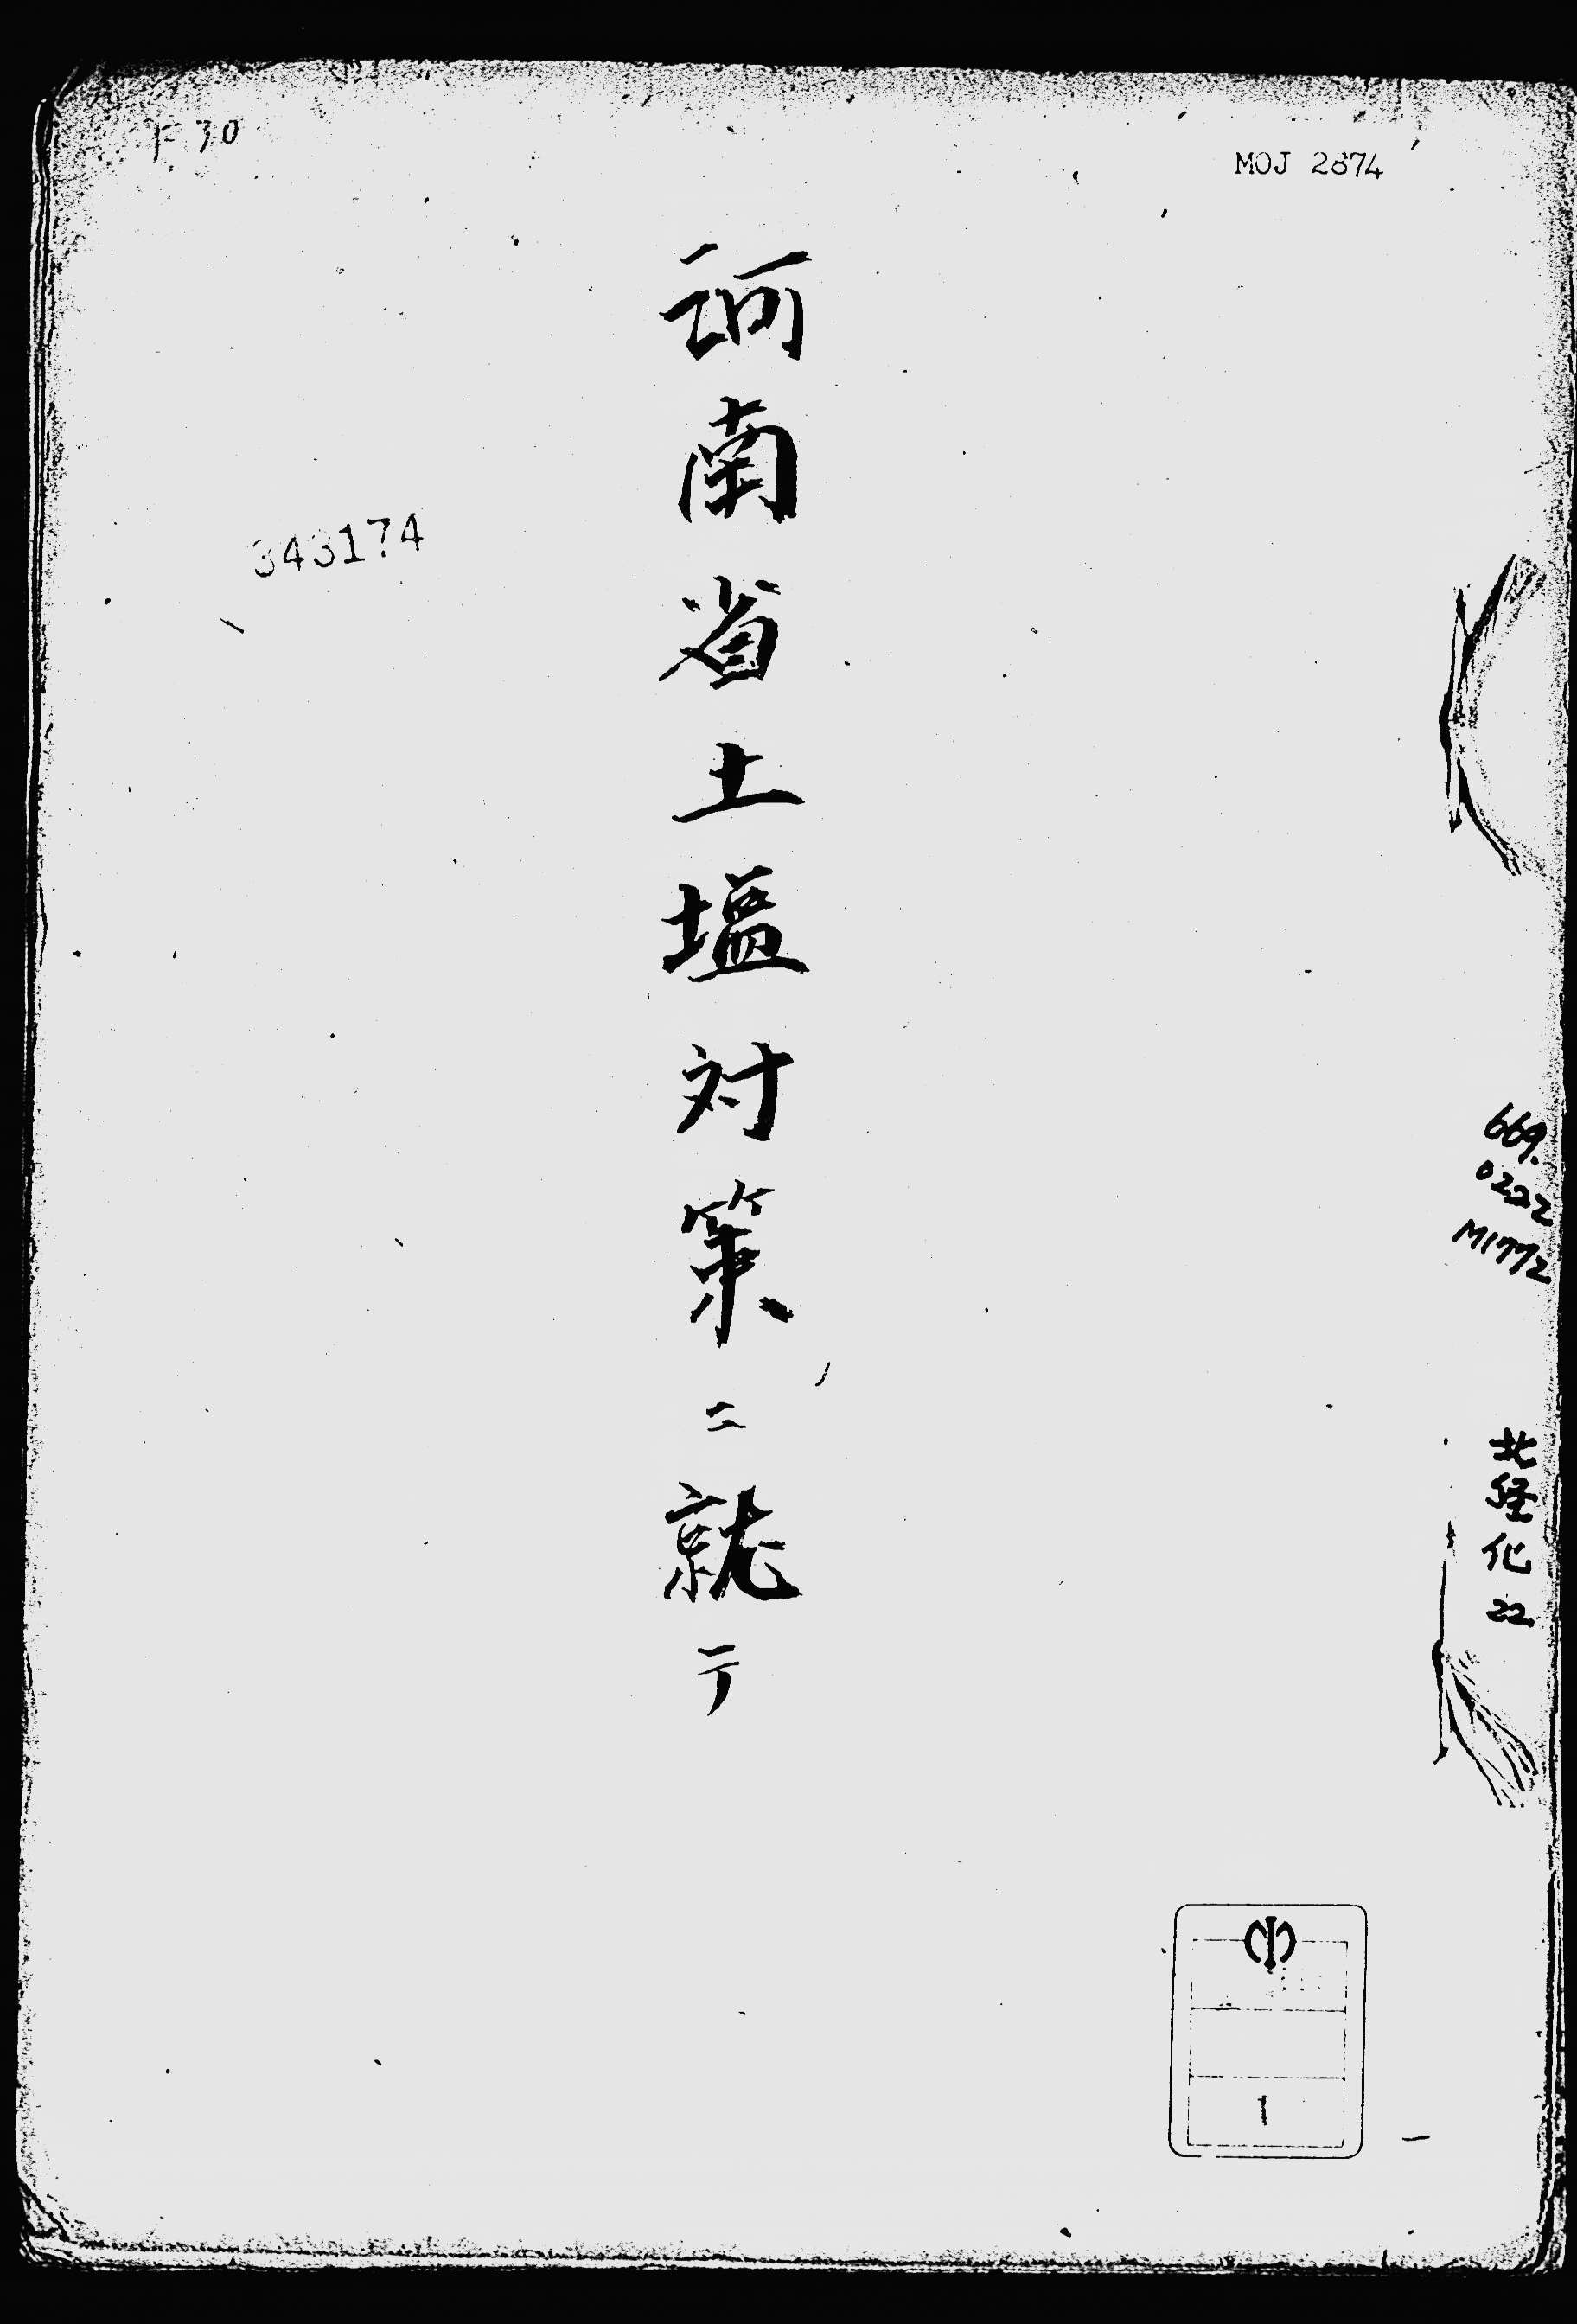 MOJ 2874
河南省土塩対策ニ就テ
343174
669.
0222
M1772
北経化
22
1